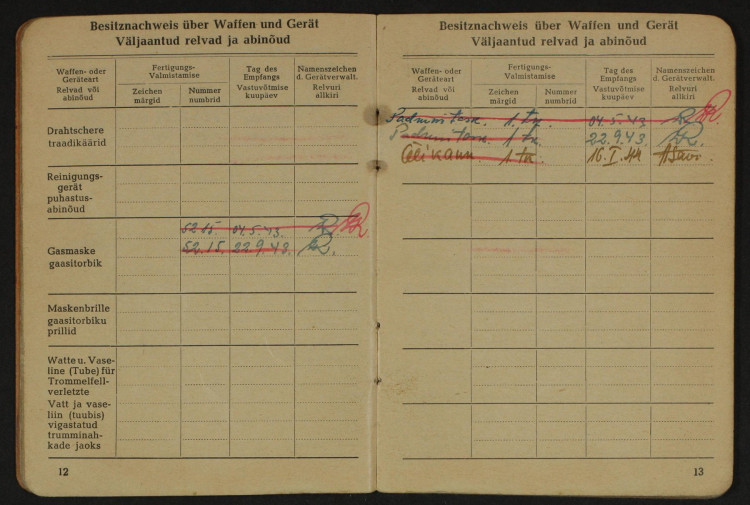 Besitznachweis über Waffen und Gerät
Väljaantud relvad ja abinõud
Waffen- oder
Geräteart
Relvad või
abinõud
Fertigungs-
Valmistamise
Zeichen
märgid
Nummer
numbrid
Tag des
Empfangs
Vastuvõtmise
kuupäev
Namenszeichen
d. Gerätverwalt.
Relvuri
allkiri
Drahtschere
traadikäärid
Reinigungs-
gerät
puhastus-
abinõud
Gasmaske
gaasitorbik
52.15. 04.5.43.
52.15. 22.9.43.
Maskenbrille
gaasitorbiku
prillid
Watte u. Vase-
line (Tube) für
Trommelfell-
verletzte
Vatt ja vase-
liin (tuubis)
vigastatud
trumminah-
kade jaoks
12
Besitznachweis über Waffen und Gerät
Väljaantud relvad ja abinõud
Waffen- oder
Geräteart
Relvad või
abinõud
Fertigungs-
Valmistamise
Zeichen
märgid
Nummer
numbrid
Tag des
Empfangs
Vastuvõtmise
kuupäev
Namenszeichen
d. Gerätverwalt.
Relvuri
allkiri
Padruni task. 1. tk. 04.5.43
Padruni task. 1 tk. 22.9.43.
Õlikann. 1. tk. 16.I.44
13